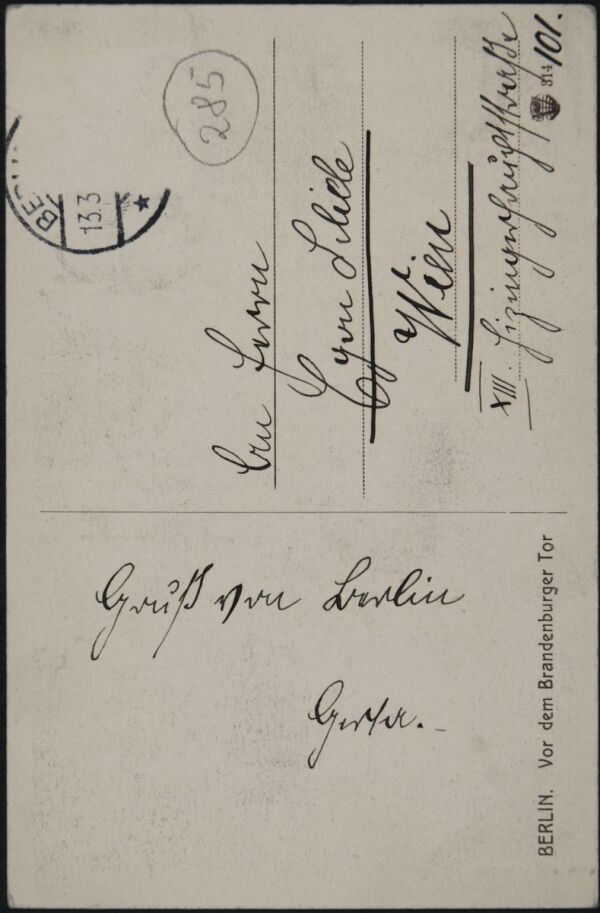 Gruß von Berlin
Gerta.
BERLIN. Vor dem Brandenburger Tor
285
13.3
An Herrn
Egon Schiele
Wien
XIII. Hizingerhauptstraße
101.
814